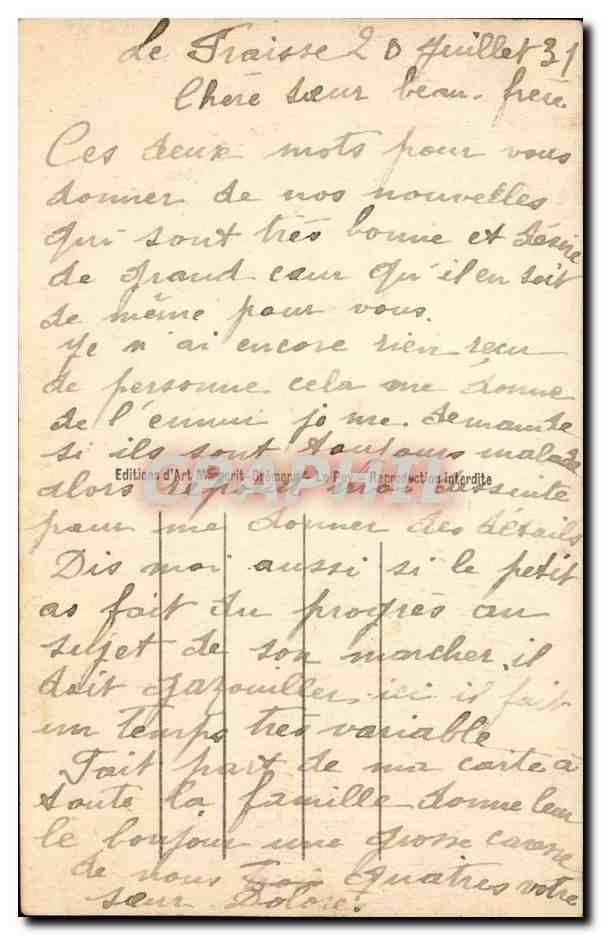 Le Fraisse 20 Juillet 31
Chère sœur beau-frère
Ces deux mots pour vous
donner de nos nouvelles
qui sont très bonne et désire
de grand cœur qu'il en soit
de même pour vous.
Je n'ai encore rien recu
de personne cela me donne
de l'ennui je me demande
si ils sont toujours malade
Editions d'Art Margerit-Brémond - Le Puy - Reproduction interdite
alors répond moi
pour me donner des détails
Dis moi aussi si le petit
as fait du progrès au
sujet de son marcher, il
doit gazouiller, ici il fait
un temps très variable
Fait part de ma carte à
toute la famille donne leur
le bonjour une grosse caresse
de nous quatres votre
sœur Dolores